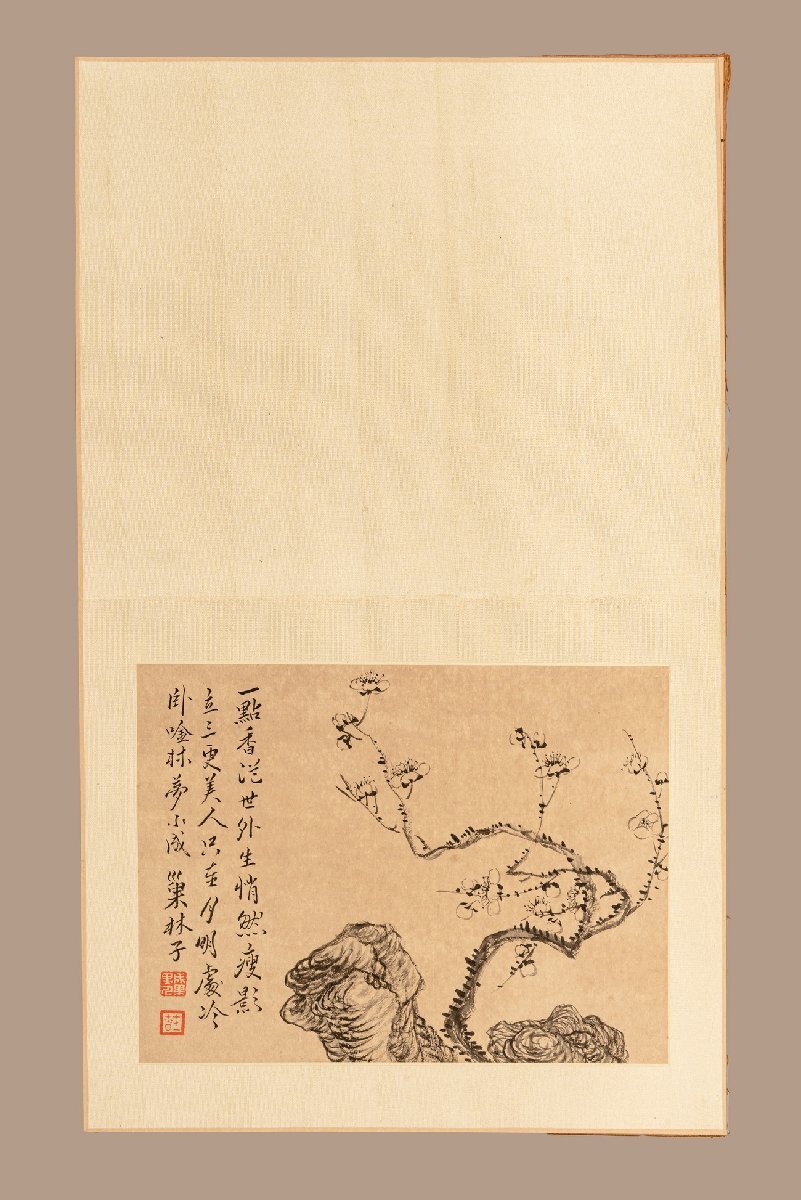 一點香從世外生悄然瘦影
立三更美人只在月明處冷
卧唫林夢不成 巢林子